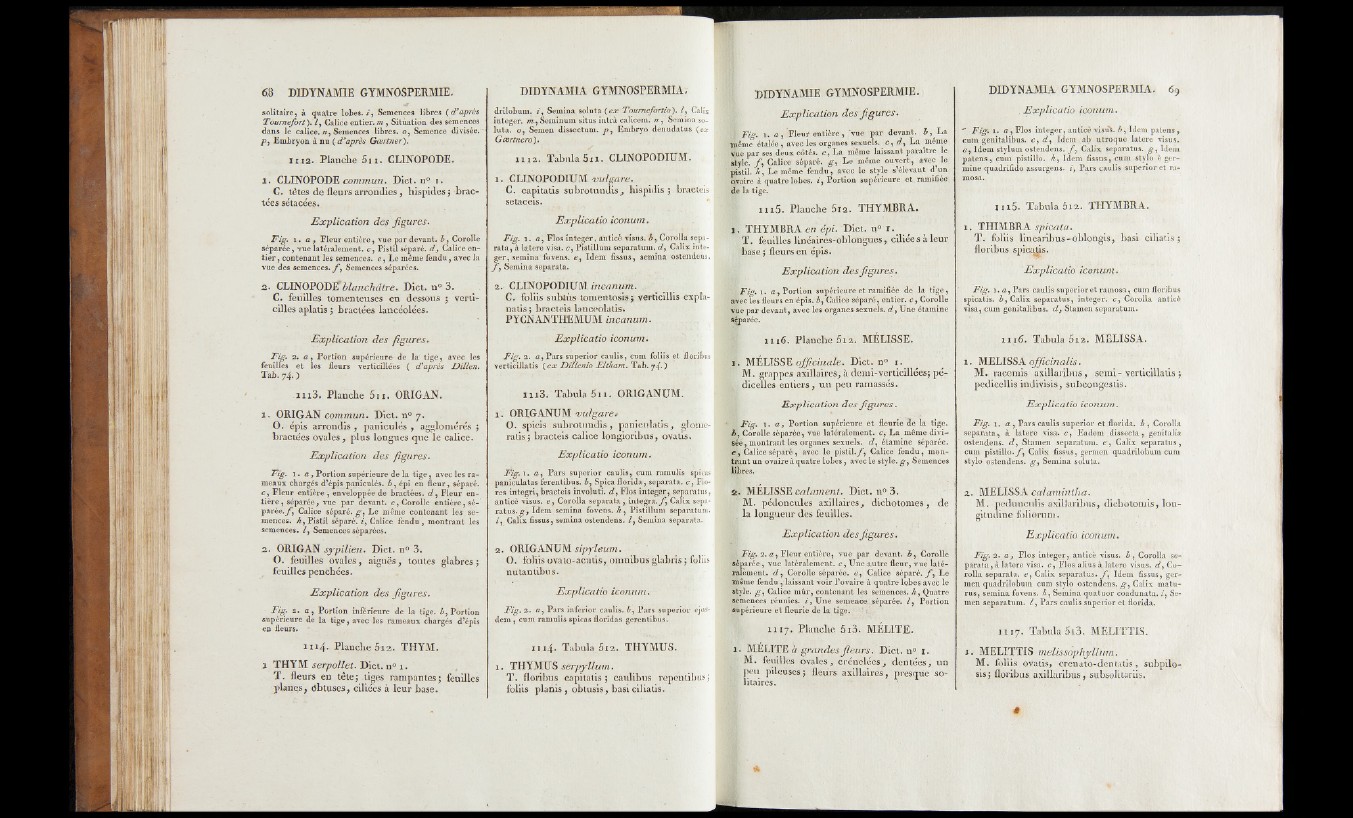 68 DIDYNAMIE GYMNOSPERMIE.
solitaire, à quatre lobes. i, Semences libres ( d'après
Tournefort ). l, Calice entier. m, Situation des semences
dans le calice. n, Semences libres. o, Semence divisée.
p, Embryon à nu ( d'après Gærtner ).
1112. Planche 511. CLINOPODE.
1. CLINOPODE commun. Dict. n° 1.
C. têtes de fleurs arrondies, hispides; brac-
tées sétacées.
Explication des figures.
Fig. 1. a, Fleur entière, vue par devant. b, Corolle
séparée, vue latéralement. c, Pistil séparé. d, Calice en-
tier, contenant les semences. e, Le même fendu, avec la
vue des semences. f, Semences séparées.
2. CLINOPODE blanchâtre. Dict. n° 3.
C. feuilles tomenteuses en dessous ; verti-
cilles aplatis ; bractées lancéolées.
Explication des figures.
Fig. 2. a, Portion supérieure de la tige, avec les
feuilles et les fleurs verticillées ( d'après Dillen.
Tab. 74. )
1113. Planche 511. ORIGAN.
1. ORIGAN commun. Dict. n° 7.
O. épis arrondis, paniculés, agglomérés ;
bractées ovales, plus longues que le calice.
Explication des figures.
Fig. 1. a, Portion supérieure de la tige, avec les ra-
meaux chargés d'épis paniculés. b, épi en fleur, séparé.
c, Fleur entière, enveloppée de bractées. d, Fleur en-
tière, séparée, vue par devant. e, Corolle entière, sé-
parée. f, Calice séparé. g, Le même contenant les se-
mences. h, Pistil séparé. i, Calice fendu, montrant les
semences. l, Semences séparées.
2. ORIGAN sypilien. Dict. n° 3.
O. feuilles ovales, aiguës, toutes glabres ;
feuilles penchées.
Explication des figures.
Fig. 2. a, Portion inférieure de la tige. b, Portion
supérieure de la tige, avec les rameaux chargés d'épis
en fleurs.
1114. Planche 512. THYM.
1 THYM serpollet. Dict. n° 1.
T. fleurs en tête; tiges rampantes; feuilles
planes, obtuses, ciliées à leur base.
DIDYNAMIA GYMNOSPERMIA.
drilobum. i, Semina soluta (ex Tournefortio). l, Calix
integer. m, Seminum situs intrà calicem. n, Semina so-
luta. o, Semen dissectum. p, Embryo denudatus (ex
Gærtnero).
1112. Tabula 511. CLINOPODIUM.
1. CLINOPODIUM vulgare.
C. capitatis subrotundis, hispidis ; bracteis
setaceis.
Explicatio iconum.
Fig. 1. a, Flos integer, anticè visus. b, Corolla sepa-
rata, à latere visa. c, Pistillum separatum. d, Calix inte-
ger, semina fovens. e, Idem fissus, semina ostendens.
f, Semina separata.
2. CLINOPODIUM incanum.
C. foliis subtùs tomentosis; verticillis expla-
natis; bracteis lanceolatis.
PYCNANTHEMUM incanum.
Explicatio iconum.
Fig. 2. a, Pars superior caulis, cum foliis et floribus
verticillatis (ex Dillenio Eltham. Tab. 74.)
1113. Tabula 511. ORIGANUM.
1. ORIGANUM vulgare.
O. spicis subrotundis, paniculatis, glome-
ratis; bracteis calice longioribus, ovatis.
Explicatio iconum.
Fig. 1. a, Pars superior caulis, cum ramulis spicas
paniculatas ferentibus. b, Spica florida, separata. c, Flo-
res integri, bracteis involuti. d, Flos integer, separatus,
anticè visus. e, Corolla separata, integra. f, Calix sepa-
ratus. g, Idem semina fovens. h, Pistillum separatum.
i, Calix fissus, semina ostendens. l, Semina separata.
2. ORIGANUM sipyleum.
O. foliis ovato-acutis, omnibus glabris; foliis
nutantibus.
Explicatio iconum.
Fig. 2. a, Pars inferior caulis. b, Pars superior ejus-
dem, cum ramulis spicas floridas gerentibus.
1114. Tabula 512. THYMUS.
1. THYMUS serpyllum.
T. floribus capitatis ; caulibus repentibus;
foliis planis, obtusis, basi ciliatis.
DIDYNAMIE GYMNOSPERMIE.
Explication des figures.
Fig. 1. a, Fleur entière, vue par devant. b, La
même étalée, avec les organes sexuels. c, d, La même
vue par ses deux côtés. e, La même laissant paraître le
style. f, Calice séparé. g, Le même ouvert, avec le
pistil. h, Le même fendu, avec le style s'élevant d'un
ovaire à quatre lobes. i, Portion supérieure et ramifiée
de la tige.
1115. Planche 512. THYMBRA.
1. THYMBRA en épi. Dict. n° 1.
T. feuilles linéaires-oblongues, ciliées à leur
base; fleurs en épis.
Explication des figures.
Fig. 1. a, Portion supérieure et ramifiée de la tige,
avec les fleurs en épis. b, Calice séparé, entier. c, Corolle
vue par devant, avec les organes sexuels. d, Une étamine
séparée.
1116. Planche 512. MÉLISSE.
1. MÉLISSE officinale. Dict. n° 1.
M. grappes axillaires, à demi-verticillées; pé-
dicelles entiers, un peu ramassés.
Explication des figures.
Fig. 1. a, Portion supérieure et fleurie de la tige.
b, Corolle séparée, vue latéralement. c, La même divi-
sée, montrant les organes sexuels. d, étamine séparée.
e, Calice séparé, avec le pistil. f, Calice fendu, mon-
trant un ovaire à quatre lobes, avec le style. g, Semences
libres.
2. MÉLISSE calament. Dict. n° 3.
M. pédoncules axillaires, dichotomes, de
la longueur des feuilles.
Explication des figures.
Fig. 2. a, Fleur entière, vue par devant. b, Corolle
séparée, vue latéralement. c, Une autre fleur, vue laté-
ralement. d, Corolle séparée. e, Calice séparé. f, Le
même fendu, laissant voir l'ovaire à quatre lobes avec le
style. g, Calice mûr, contenant les semences. h, Quatre
semences réunies. i, Une semence séparée. l, Portion
supérieure et fleurie de la tige.
1117. Planche 513. MÉLITE.
1. MÉLITE à grandes fleurs. Dict. n° 1.
M. feuilles ovales, crénelées, dentées, un
peu pileuses; fleurs axillaires, presque so-
litaires.
DIDYNAMIA GYMNOSPERMIA. 69
Explicatio iconum.
Fig. 1. a, Flos integer, anticè visus. b, Idem patens,
cum genitalibus. c, d, Idem ab utroque latere visus.
e, Idem stylum ostendens. f, Calix separatus. g, Idem
patens, cum pistillo. h, Idem fissus, cum stylo è ger-
mine quadrifido assurgens. i, Pars caulis superior et ra-
mosa.
1115. Tabula 512. THYMBRA.
1. THIMBRA spicata.
T. foliis linearibus-oblongis, basi ciliatis ;
floribus spicatis.
Explicatio iconum.
Fig. 1. a, Pars caulis superior et ramosa, cum floribus
spicatis. b, Calix separatus, integer. c, Corolla anticè
visa, cum genitalibus. d, Stamen separatum.
1116. Tabula 512. MELISSA.
1. MELISSA officinalis.
M. racemis axillaribus, semi-verticillatis ;
pedicellis indivisis, subcongestis.
Explicatio iconum.
Fig. 1. a, Pars caulis superior et florida. b, Corolla
separata, à latere visa. c, Eadem dissecta, genitalia
ostendens. d, Stamen separatum. e, Calix separatus,
cum pistillo. f, Calix fissus, germen quadrilobum cum
stylo ostendens. g, Semina soluta.
2. MELISSA calamintha.
M. pedunculis axillaribus, dichotomis, lon-
gitudine foliorum.
Explicatio iconum.
Fig. 2. a, Flos integer, anticè visus. b, Corolla se-
parata, à latere visa. c, Flos alius à latere visus. d, Co-
rolla separata. e, Calix separatus. f, Idem fissus, ger-
men quadrilobum cum stylo ostendens. g, Calix matu-
rus, semina fovens. h, Semina quatuor coadunata. i, Se-
men separatum. l, Pars caulis superior et florida.
1117. Tabula 513. MELITTIS.
1. MELITTIS melissophyllum.
M. foliis ovatis, crenato-dentatis, subpilo-
sis; floribus axillaribus, subsolitariis.